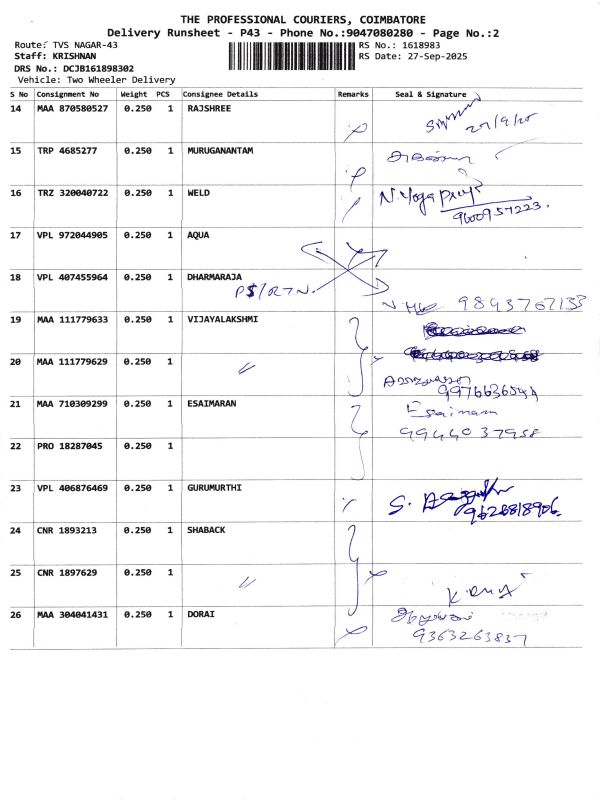 THE PROFESSIONAL COURIERS, COIMBATORE
Delivery Runsheet - P43 - Phone No.:9047080280 - Page No.:2
Route: TVS NAGAR-43
RS No.: 1618983
Staff: KRISHNAN
RS Date: 27-Sep-2025
DRS No.: DCJB161898302
Vehicle: Two Wheeler Delivery
S No Consignment No Weight PCS Consignee Details Remarks Seal & Signature
14 MAA 870580527 0.250 1 RAJSHREE
27/9/25
15 TRP 4685277 0.250 1 MURUGANANTAM
16 TRZ 320040722 0.250 1 WELD
N. Yoga Priya
9600957223.
17 VPL 972044905 0.250 1 AQUA
18 VPL 407455964 0.250 1 DHARMARAJA
/RTN.
9843767133
19 MAA 111779633 0.250 1 VIJAYALAKSHMI
20 MAA 111779629 0.250 1 〃
21 MAA 710309299 0.250 1 ESAIMARAN
Esaimaran
9944037958
22 PRO 18287045 0.250 1
23 VPL 406876469 0.250 1 GURUMURTHI
S.
9628818906.
24 CNR 1893213 0.250 1 SHABACK
25 CNR 1897629 0.250 1 〃
26 MAA 304041431 0.250 1 DORAI
9363263837